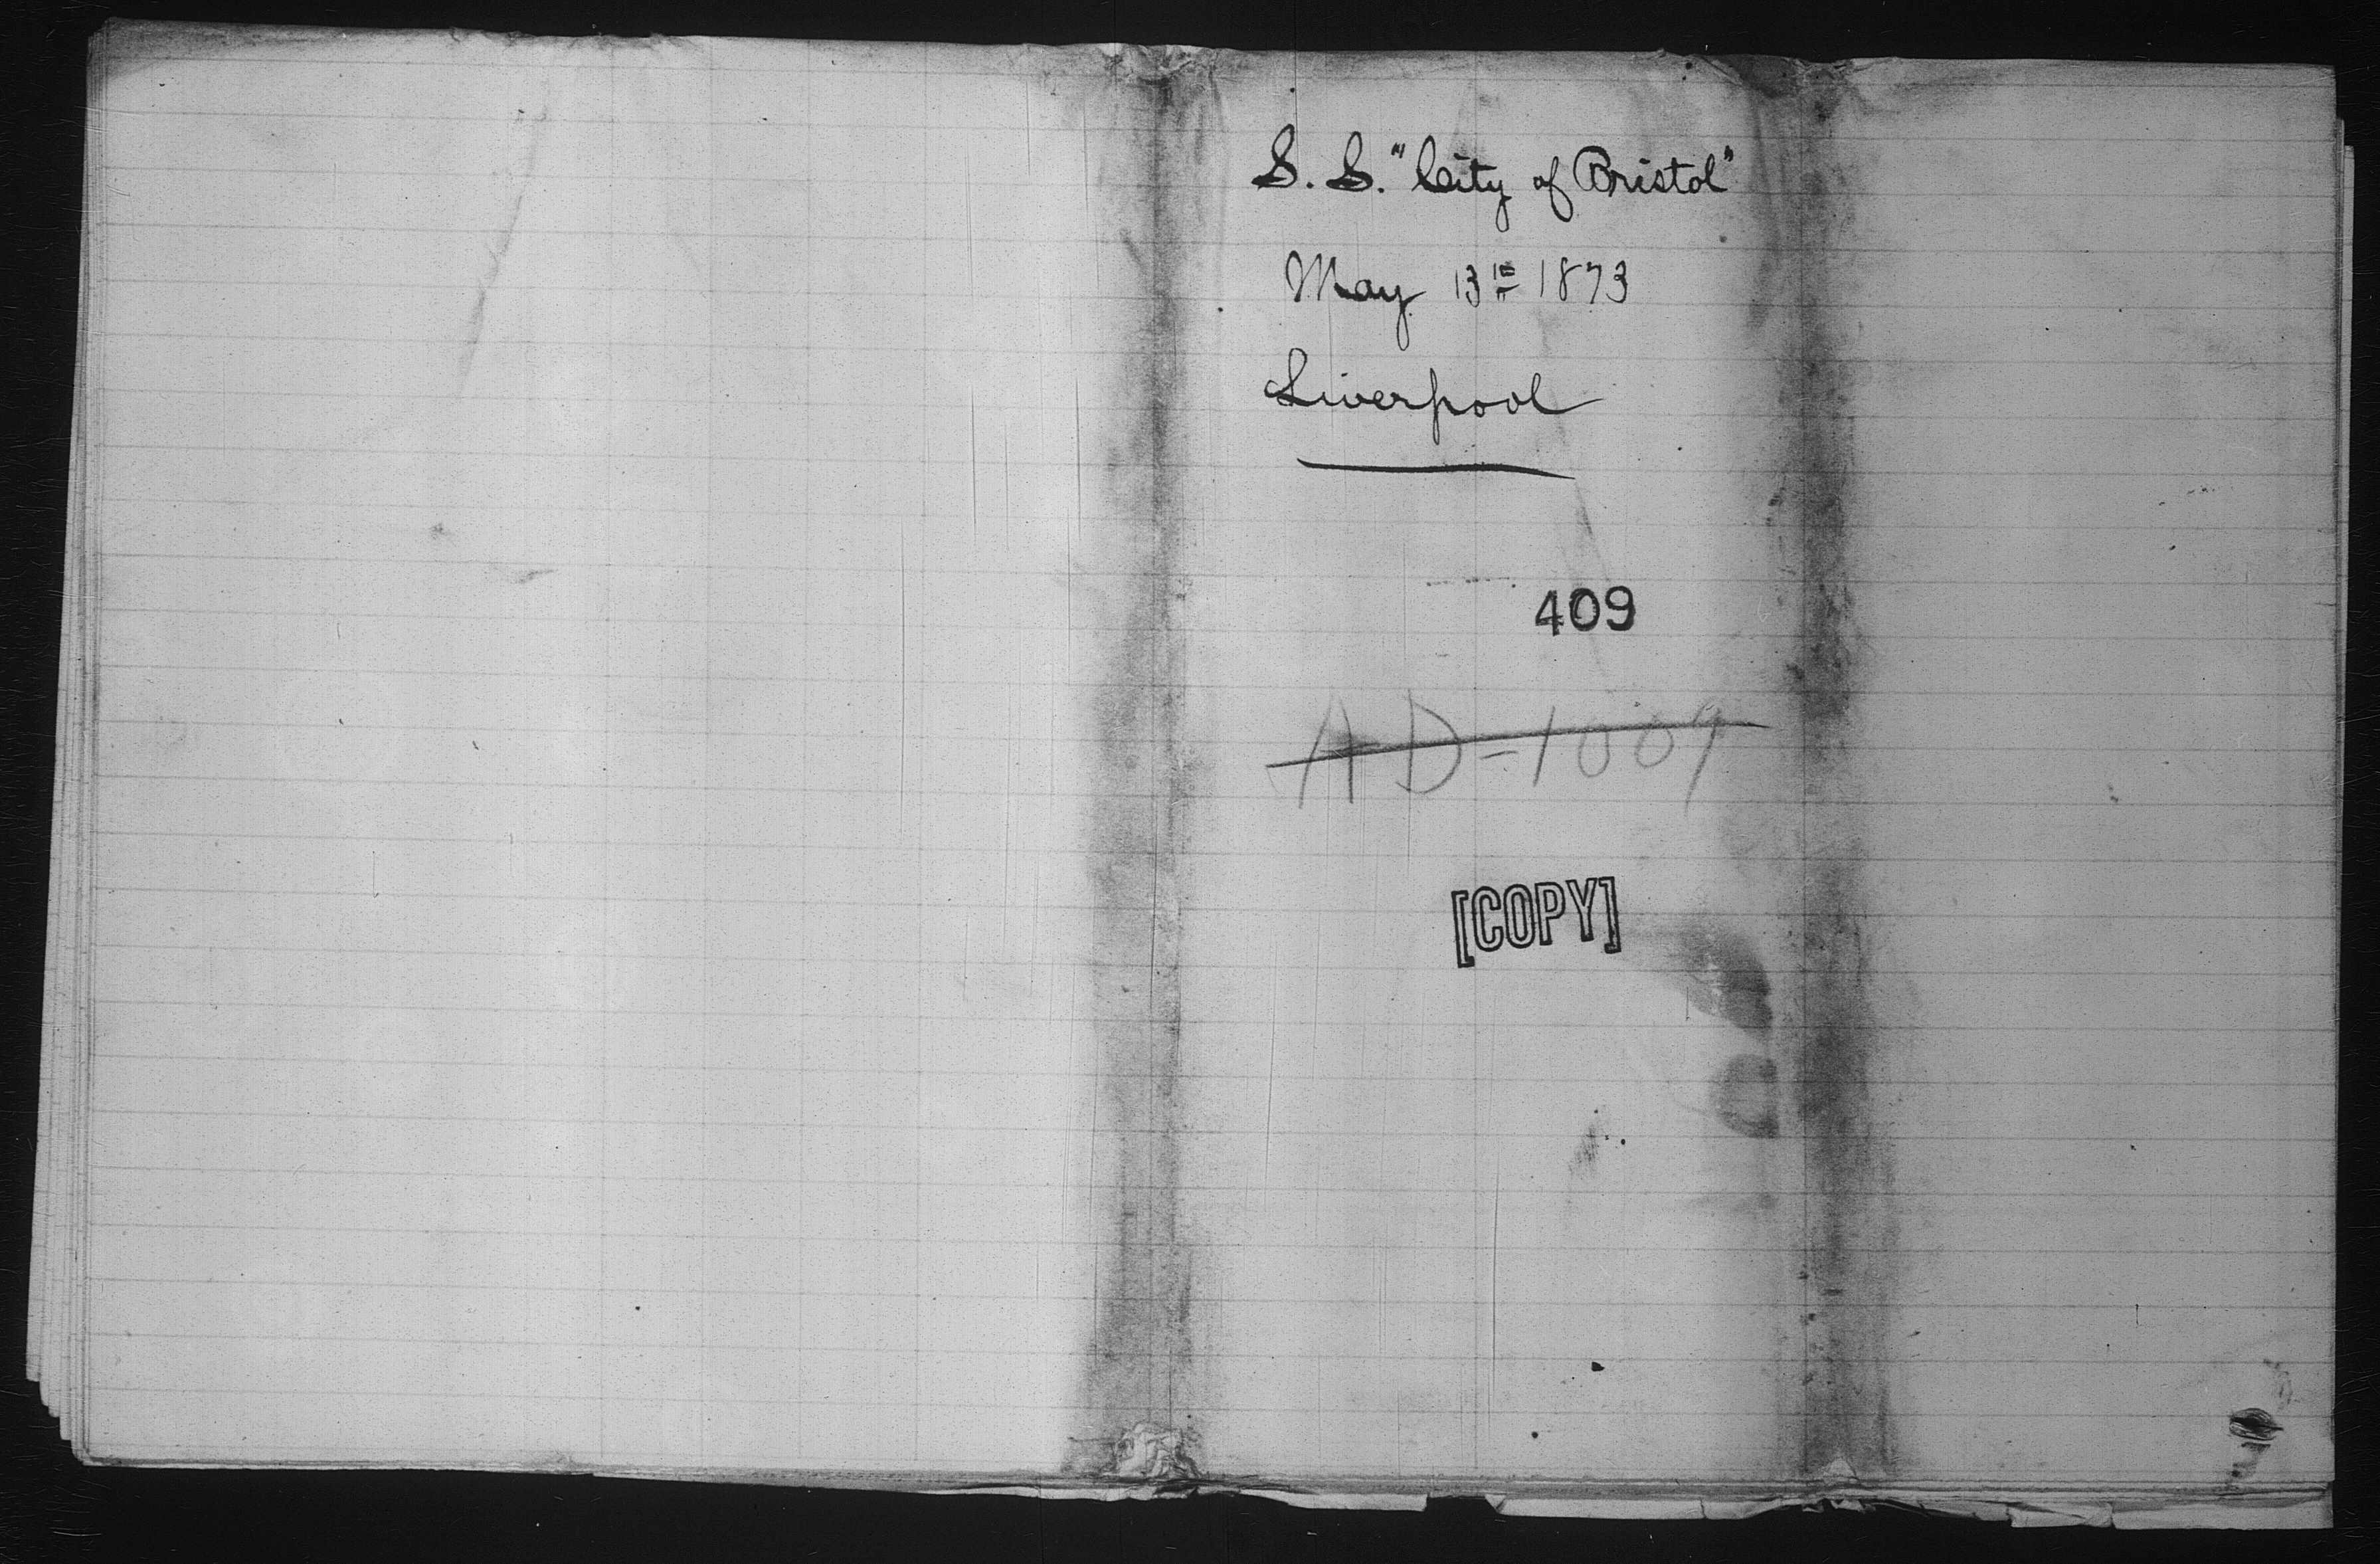 S. S. "City of Bristol"
May 13th 1873
Liverpool
409
AD-1009
[COPY]